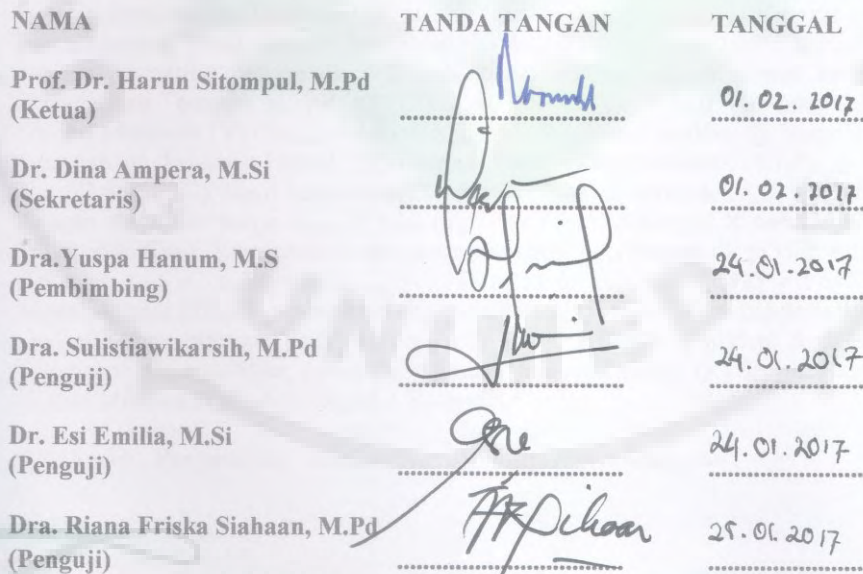 NAMA TANDA TANGAN TANGGAL
Prof. Dr. Harun Sitompul, M.Pd
(Ketua) 01. 02. 2017
Dr. Dina Ampera, M.Si
(Sekretaris) 01. 02. 2017
Dra.Yuspa Hanum, M.S
(Pembimbing) 24.01.2017
Dra. Sulistiawikarsih, M.Pd
(Penguji) 24.01.2017
Dr. Esi Emilia, M.Si
(Penguji) 24.01.2017
Dra. Riana Friska Siahaan, M.Pd
(Penguji) 25.01.2017
UNIMED